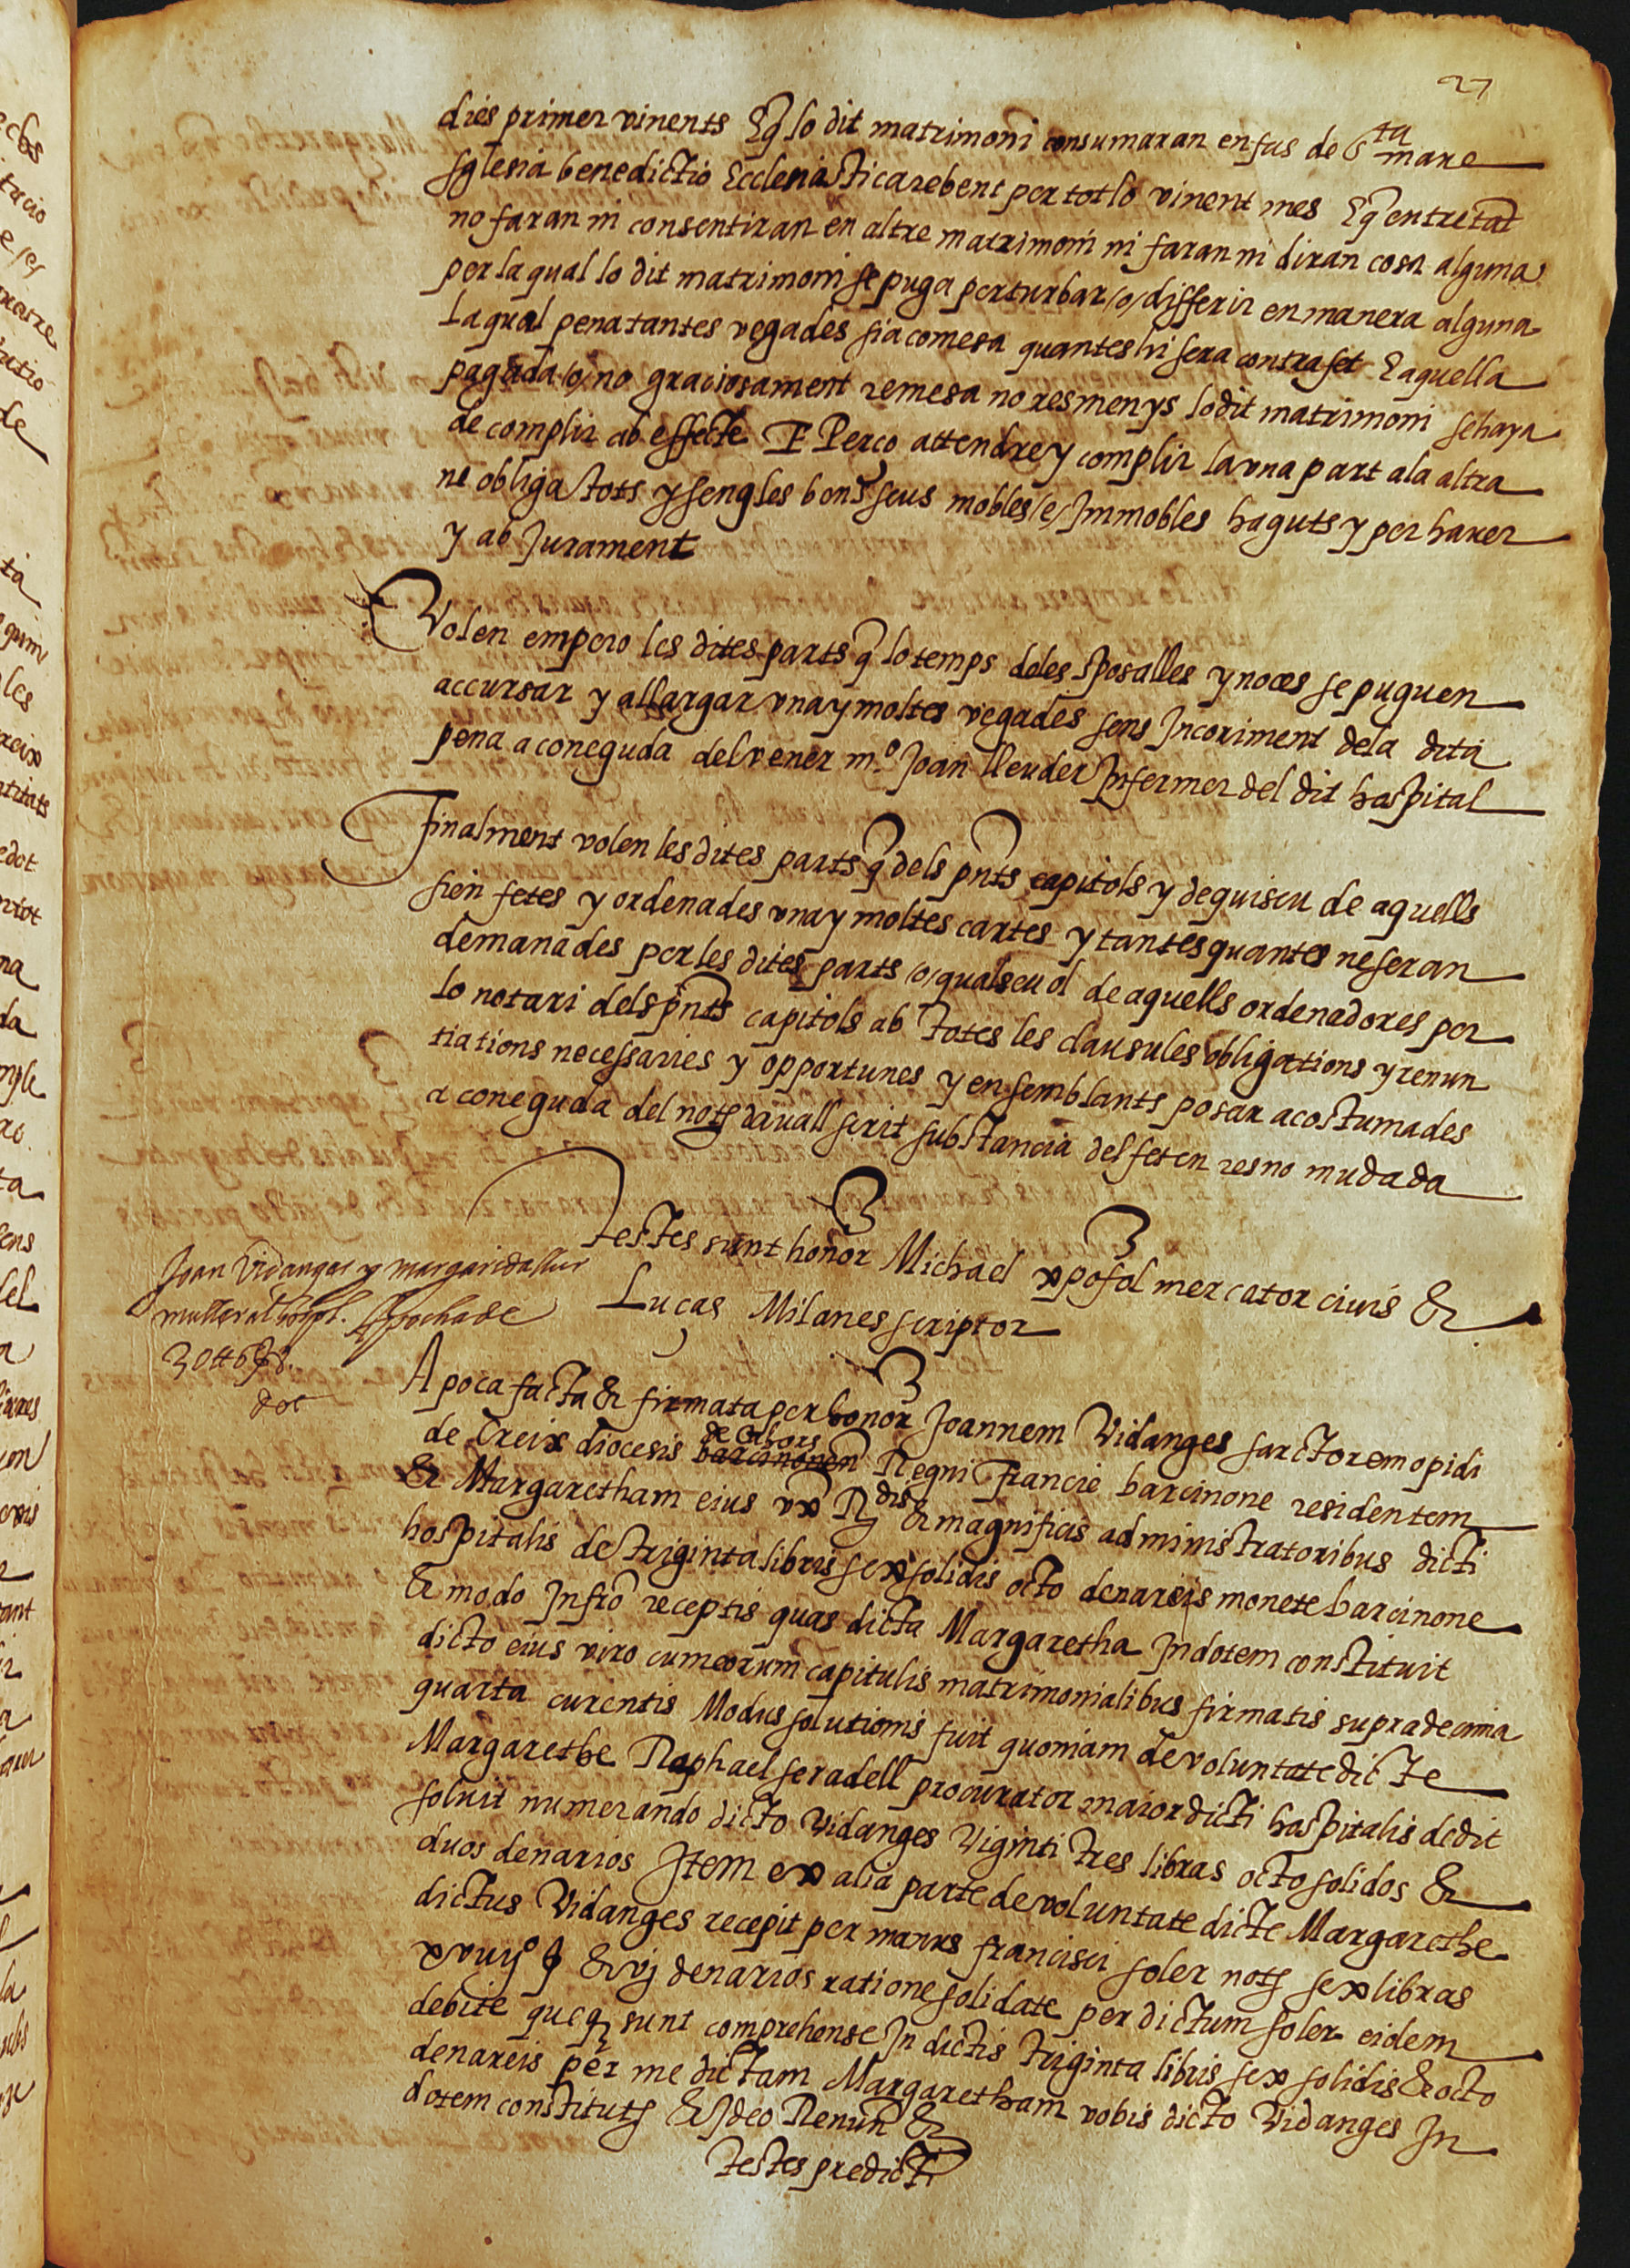 27
dies primer vinents Eq̃ lo dit matrimoni consumaran en fas de Sta mare
sglesia benedictio Ecclesiastica rebent per tot lo vinent mes Eq̃ entretat
no faran ni consentiran en altre matrimoni ni faran ni diran cosa alguna
per la qual lo dit matrimoni se puga perturbar /o/ differir en manera alguna
La qual pena tantes vegades sia comesa quantes hi sera contrafet E aquella
pagada /o/ no graciosament remesa no resmenys lo dit matrimoni se haya
de complir ab effecte E Perço attendre y complir la vna part ala altra
ne obliga tots y sengles bens seus mobles /e/ Immobles haguts y per haver
y ab Jurament
Volen empero les dites parts q̃ lo temps deles sposalles y noces se puguen
accursar y allargar vna y moltes vegades sens Incoriment dela dita
pena a coneguda del vener mº Joan lleuder Infermer del dit hospital
Finalment volen les dites parts q̃ dels pñts capitols y de quiscu de aquells
sien fetes y ordenades vna y moltes cartes y tantes quantes ne seran
demanades per les dites parts /o/ qualseuol de aquells ordenadores per
lo notari dels pñts capitols ab totes les clausules obligations y renun
tiations necessaries y opportunes y en semblants posar acostumades
a coneguda del not̃ dauall scrit substancia del fet en res no mudada
Testes sunt honor Michael xpofol mercator ciuis &
Lucas Milanes scriptor
Joan Vidanges y margarida sur
muller al hospl. Apocha de
30 ₶ 6 ß 8.
dot
Apoca facta & firmata per honor Joannem Vidanges sarctorem opidi
de Creix diocesis barcinonen̄ de Cahors Regni Francie barcinone residentem
& Margaretham eius vx̄ Rdis & magnificis administratoribus dicti
hospitalis de triginta libris sex solidis octo denareis monete barcinone
& modo Infrõ receptis quas dicta Margaretha In dotem constituit
dicto eius viro cum eorum capitulis matrimonialibus firmatis supra decima
quarta curentis Modus solutionis fuit quoniam de voluntate dicte
Margarethe Raphael seradell procurator maior dicti hospitalis dedit
soluit numerando dicto Vidanges Viginti tres libras octo solidos &
duos denarios Item ex alia parte de voluntate dicte Margarethe
dictus Vidanges recepit per manus francisci soler not̃ sex libras
xviijº ß & vj denarios ratione solidate per dictum soler eidem
debite que q̃ sunt comprehense In dictis triginta libris sex solidis & octo
denareis per me dictam Margaretham vobis dicto Vidanges In
dotem constitut̃ & Ideo Renun̄ &
Testes predicti